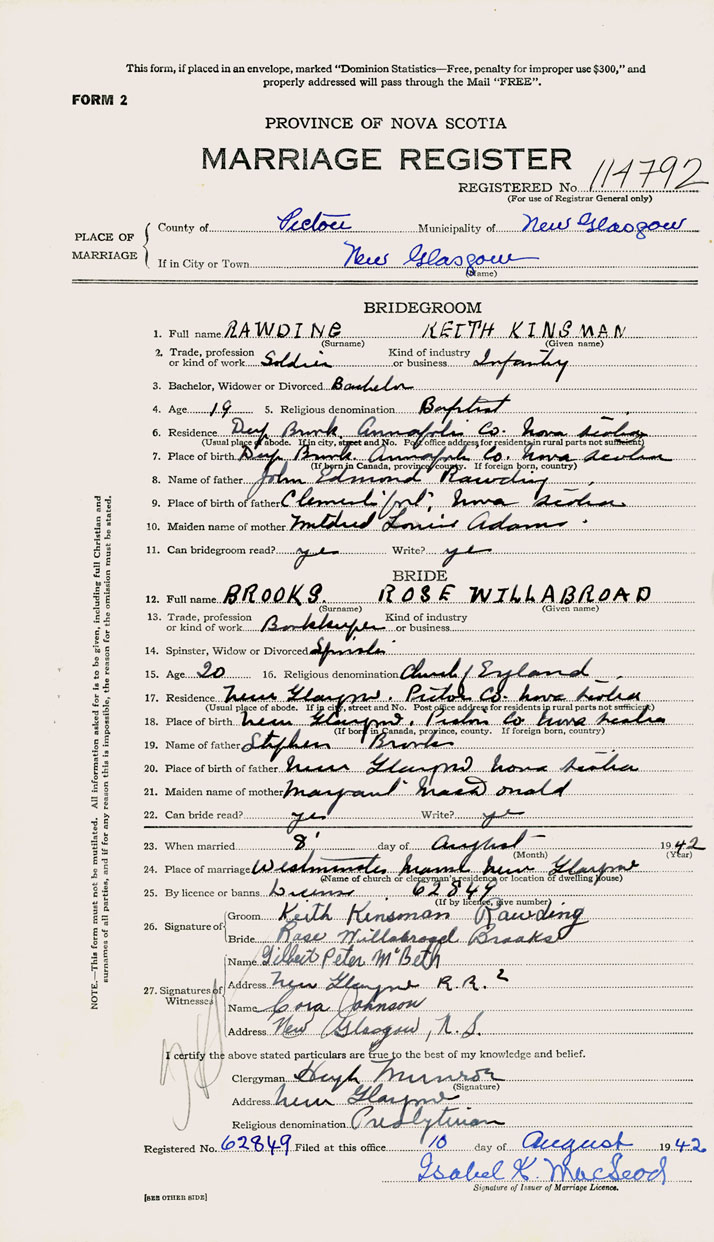 This form, if placed in an envelope, marked "Dominion Statistics—Free, penalty for improper use $300," and
properly addressed will pass through the Mail "FREE".
FORM 2
PROVINCE OF NOVA SCOTIA
MARRIAGE REGISTER
REGISTERED No. 114792
(For use of Registrar General only)
PLACE OF MARRIAGE
County of Pictou Municipality of New Glasgow
If in City or Town New Glasgow
(Name)
BRIDEGROOM
1. Full name RAWDING KEITH KINSMAN
(Surname) (Given name)
2. Trade, profession or kind of work Soldier Kind of industry or business Infantry
3. Bachelor, Widower or Divorced Bachelor
4. Age 19 5. Religious denomination Baptist
6. Residence Deep Brook Annapolis Co. Nova Scotia
(Usual place of abode. If in city, street and No. Post office address for residents in rural parts not sufficient)
7. Place of birth Deep Brook. Annapolis Co. Nova Scotia
(If born in Canada, province, county. If foreign born, country)
8. Name of father John Edmond Rawding
9. Place of birth of father Clementsport, Nova Scotia
10. Maiden name of mother Mildred Louise Adams
11. Can bridegroom read? yes Write? yes
BRIDE
12. Full name BROOKS. ROSE WILLABROAD
(Surname) (Given name)
13. Trade, profession or kind of work Bookkeeper Kind of industry or business
14. Spinster, Widow or Divorced Spinster
15. Age 20 16. Religious denomination Church / England
17. Residence New Glasgow. Pictou Co. Nova Scotia
(Usual place of abode. If in city, street and No. Post office address for residents in rural parts not sufficient)
18. Place of birth New Glasgow, Pictou Co Nova Scotia
(If born in Canada, province, county. If foreign born, country)
19. Name of father Stephen Brooks
20. Place of birth of father New Glasgow Nova Scotia
21. Maiden name of mother Margaret MacDonald
22. Can bride read? yes Write? yes
23. When married 8 day of August 1942
(Month) (Year)
24. Place of marriage Westminster Manse New Glasgow
(Name of church or clergyman's residence or location of dwelling house)
25. By licence or banns License 62849
(If by licence, give number)
26. Signature of
Groom Keith Kinsman Rawding
Bride Rose Willabroad Brooks
27. Signatures of Witnesses
Name Gilbert Peter McBeth
Address New Glasgow R.R. 2
Name Cora Johnson
Address New Glasgow, N.S.
I certify the above stated particulars are true to the best of my knowledge and belief.
Clergyman Hugh Munroe
(Signature)
Address New Glasgow
Religious denomination Presbyterian
Registered No. 62849 Filed at this office 10 day of August 1942
Isabel K. MacLeod
Signature of Issuer of Marriage Licence.
[SEE OTHER SIDE]
NOTE.—This form must not be mutilated. All information asked for is to be given, including full Christian and
surnames of all parties, and if for any reason this is impossible, the reason for the omission must be stated.